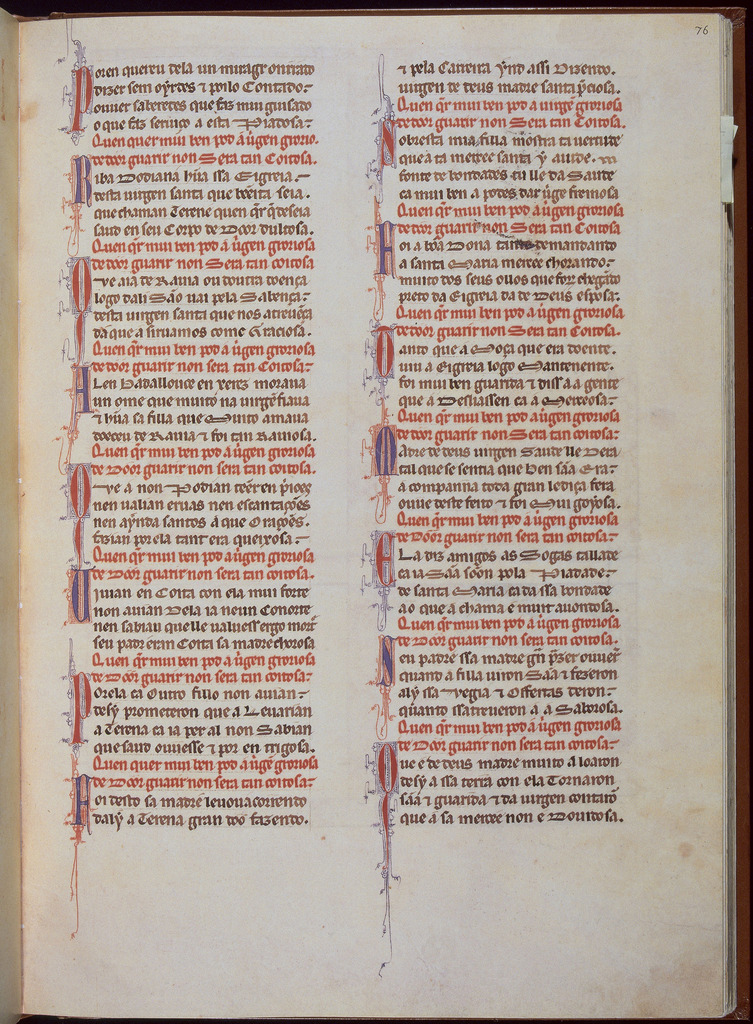 76
Poren quereu dela un miragr onrrado
dizer sem oyrdes ⁊ poilo Contado
ouuer saberedes que faz mui guisado
o que faz seruiço a esta Piadosa
Quen quer mui ben pod a uirgen glorio.
de door guarir non Sera tan Coitosa.
Riba Dodiana hũa ssa Eigreia
desta uirgen santa que bẽeita seia.
que chaman Terene quen q̃r q̃ deseia
saud en seu Corpo de Door dultosa.
Quen q̃r mui ben pod a uirgen gloriosa
de door guarir non Sera tan coitosa
O ue aia de Rauia ou doutra doença
logo dali São uai pela Sabença
desta uirgen santa que nos atreuença
dá que a siruamos come Graciosa.
Quen q̃r mui ben pod a uirgen gloriosa
de door guarir non sera tan Coitosa
A len Badallouce en xerez moraua
un ome que muito na uirgẽ fiaua
⁊ hũa sa filla que Muito amaua
doeceu de Rauia ⁊ foi tan Rauiosa.
Quen q̃r mui ben pod a uirgen gloriosa
de Door guarir non sera tan coitosa.
O ue a non Podian tẽer en prijões
nen ualian eruas nen escantações
nen aynda santos á que Orações.
fazian por ela tant era queixosa.
Quen q̃r mui ben pod a uirgen gloriosa
de Door guarir non sera tan coitosa.
U iuian en Coita con ela mui forte
non auian Dela ia neun Conorte
nen sabian quelle ualuess ergo mort
seu padr eran Coita sa madre chorosa
Quen q̃r mui ben pod a uirgen gloriosa
de Door guarir non sera tan coitosa
Porela ca Outro fillo non auian
desy prometeron que a Leuarian
a Terena ca ia per al non Sabian
que saud ouuesse ⁊ por en trigosa.
Quen quer mui ben pod a uirgẽ gloriosa
de Door guarir non sera tan coitosa
Foi desto sa madre leuoua correndo
daly a Terena gran doo fazendo.
⁊ pela Carreira ynd assi Dizendo.
uirgen de deus madre santa preciosa.
Quen q̃r mui ben pod a uirgẽ gloriosa
de door guarir non Sera tan Coitosa.
Nobresta mia filla mostra ta uertude
que á ta mercee santa y aiude.
fonte de bondades tu lle da Saude
ca mui ben a podes dar uirgẽ fremosa
Quen q̃r mui ben pod a uirgen gloriosa
de door guarir non Sera tan Coitosa
Foi a bõa Dona demandando
a santa Maria mercee chorando
muito dos seus ollos que foi chegãdo
preto da Eigreia da de Deus esposa.
Quen q̃r mui ben pod a uirgen gloriosa
de door guarir non Sera tan Coitosa.
Q ando que a Moça que era doente.
uiu a Eigreia logo Mantenente.
foi mui ben guarida ⁊ diss a a gente
que a Desliassen ca a Merceosa
Quen q̃r mui ben pod a uirgen gloriosa
de door guarir non Sera tan Coitosa
Madre de deus uirgen Saude lle Dera
tal que se sentia que ben sãa Era
a companna toda gran lediça fera
ouue deste feito ⁊ foi Mui goyosa.
Quen q̃r mui ben pod a uirgen gloriosa
de Door guarir non Sera tan Coitosa
E La diz amigos as Sogas tallade
ca ia Sãa sõon pola Piadade
de santa Maria ca da ssa bondade
ao que a chama é muit auondosa.
Quen q̃r mui ben pod a uirgen gloriosa
de Door guarir non sera tan coitosa.
Seu padre ssa madre gñ prazer ouuer
quando a filla uiron Sãa ⁊ fezeron
aly ssa Vegia ⁊ Offertas deron
quanto ssatreueron a a Saborosa.
Quen q̃r mui ben pod a uirgen gloriosa
de Door guarir non Sera tan coitosa
Que é de deus madre muito a loaron
desy a ssa terra con ela Tornaron
sãa ⁊ guarida ⁊ da uirgen contarõ
que a sa mercee non e Douidosa.